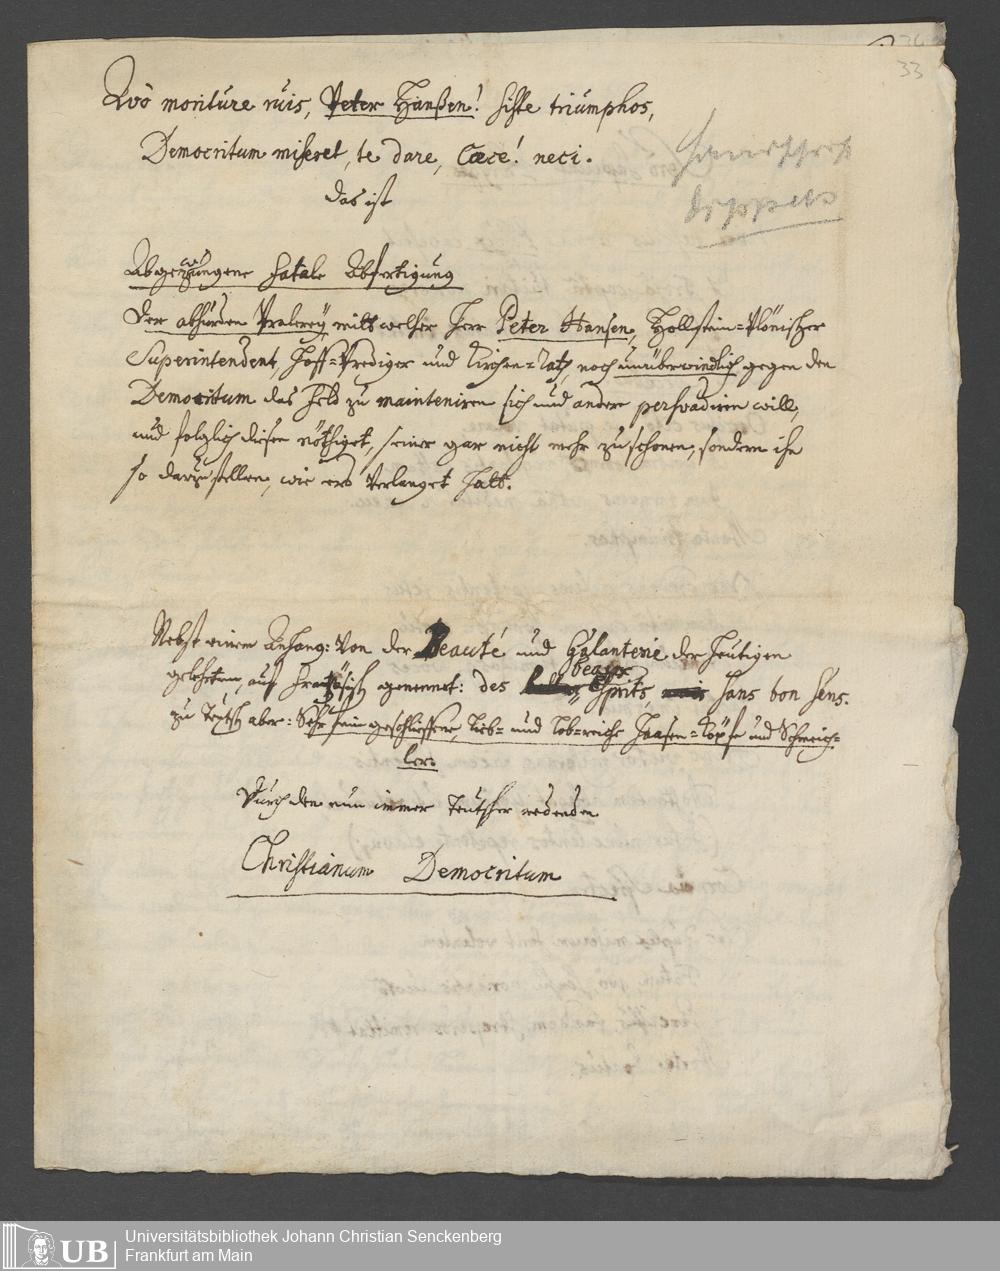 33
Quò moriture ruis, Peter Hanßen! siste triumphos,
Democritum miseret, te dare, Cæce! neci.
das ist
Abgezwungene fatale Abfertigung
Der absurden Pralerey mitt welcher Herr Peter Hansen, Hollstein-Plönischer
Superintendent, Hoff-Prediger und Kirchen-Rath, noch unüberwindlich gegen den
Democritum das Feld zu mainteniren sich und andere persvadiren will,
und folglich diesen nöthiget, seiner gar nicht mehr zu schonen, sondern ihn
so darzustellen, wie ers verlanget hatt.
Nebst einem Anhang: Von der Beauté und Galanterie der heutigen
beaux
gelehrten, auf Frantzösisch genennet: des Esprits, Sans bon sens.
zu Teutsch aber: Sehr fein geschliffene, Lieb- und Lob-reiche Haasen-Köpfe und Schmeich-
ler.
Durch den nun immer Teutscher redenden
Christianum Democritum
Handschrift
Dippels
UB
Universitätsbibliothek Johann Christian Senckenberg
Frankfurt am Main